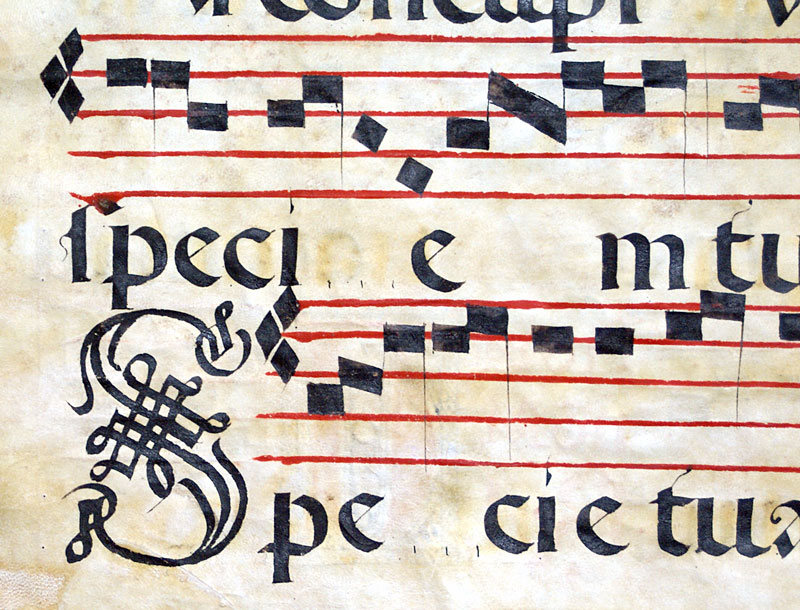 concupi
speci e m tu
Spe cie tua